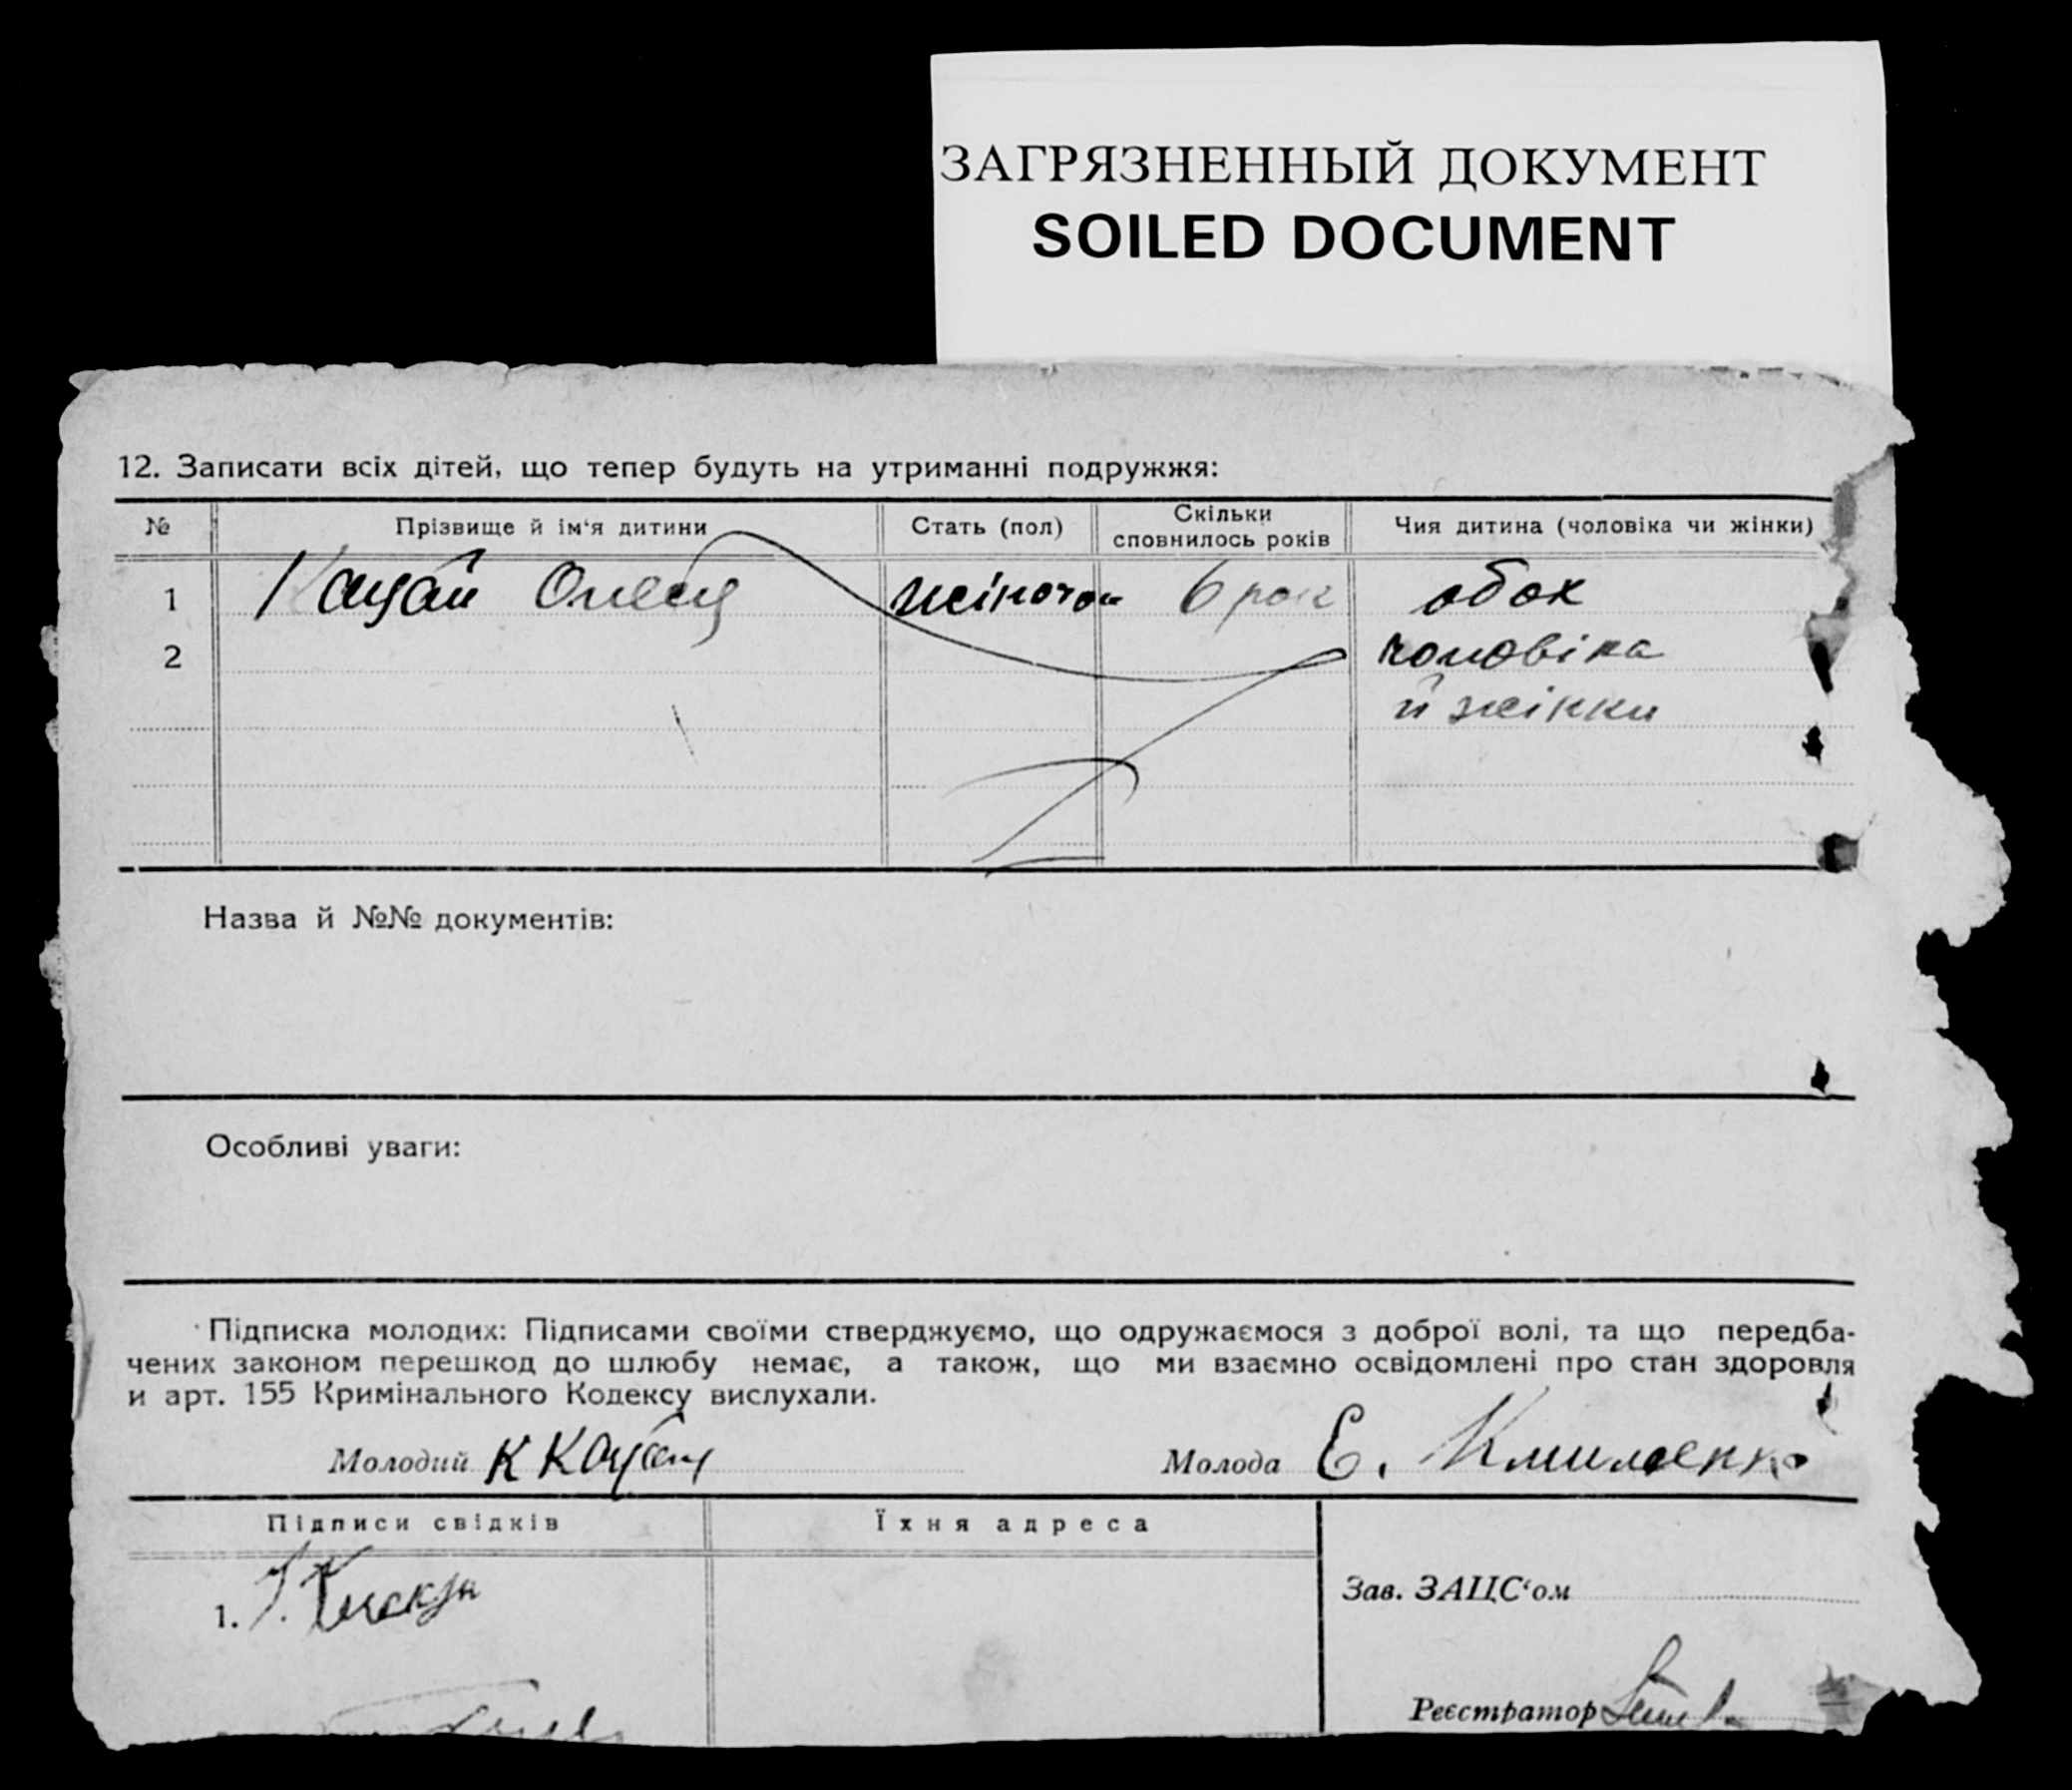 ЗАГРЯЗНЕННЫЙ ДОКУМЕНТ
SOILED DOCUMENT
12. Записати всіх дітей, що тепер будуть на утриманні подружжя:
№ Прізвище й ім'я дитини Стать (пол) Скільки сповнилось років Чия дитина (чоловіка чи жінки)
1 жіноча 6 рок обох
2 чоловіка
й жінки
Назва й №№ документів:
Особливі уваги:
Підписка молодих: Підписами своїми стверджуємо, що одружаємося з доброї волі, та що передба-
чених законом перешкод до шлюбу немає, а також, що ми взаємно освідомлені про стан здоровля
и арт. 155 Кримінального Кодексу вислухали.
Молодий К Молода Є. Клименко
Підписи свідків Їхня адреса
1. Зав. ЗАЦС'ом
Реєстратор